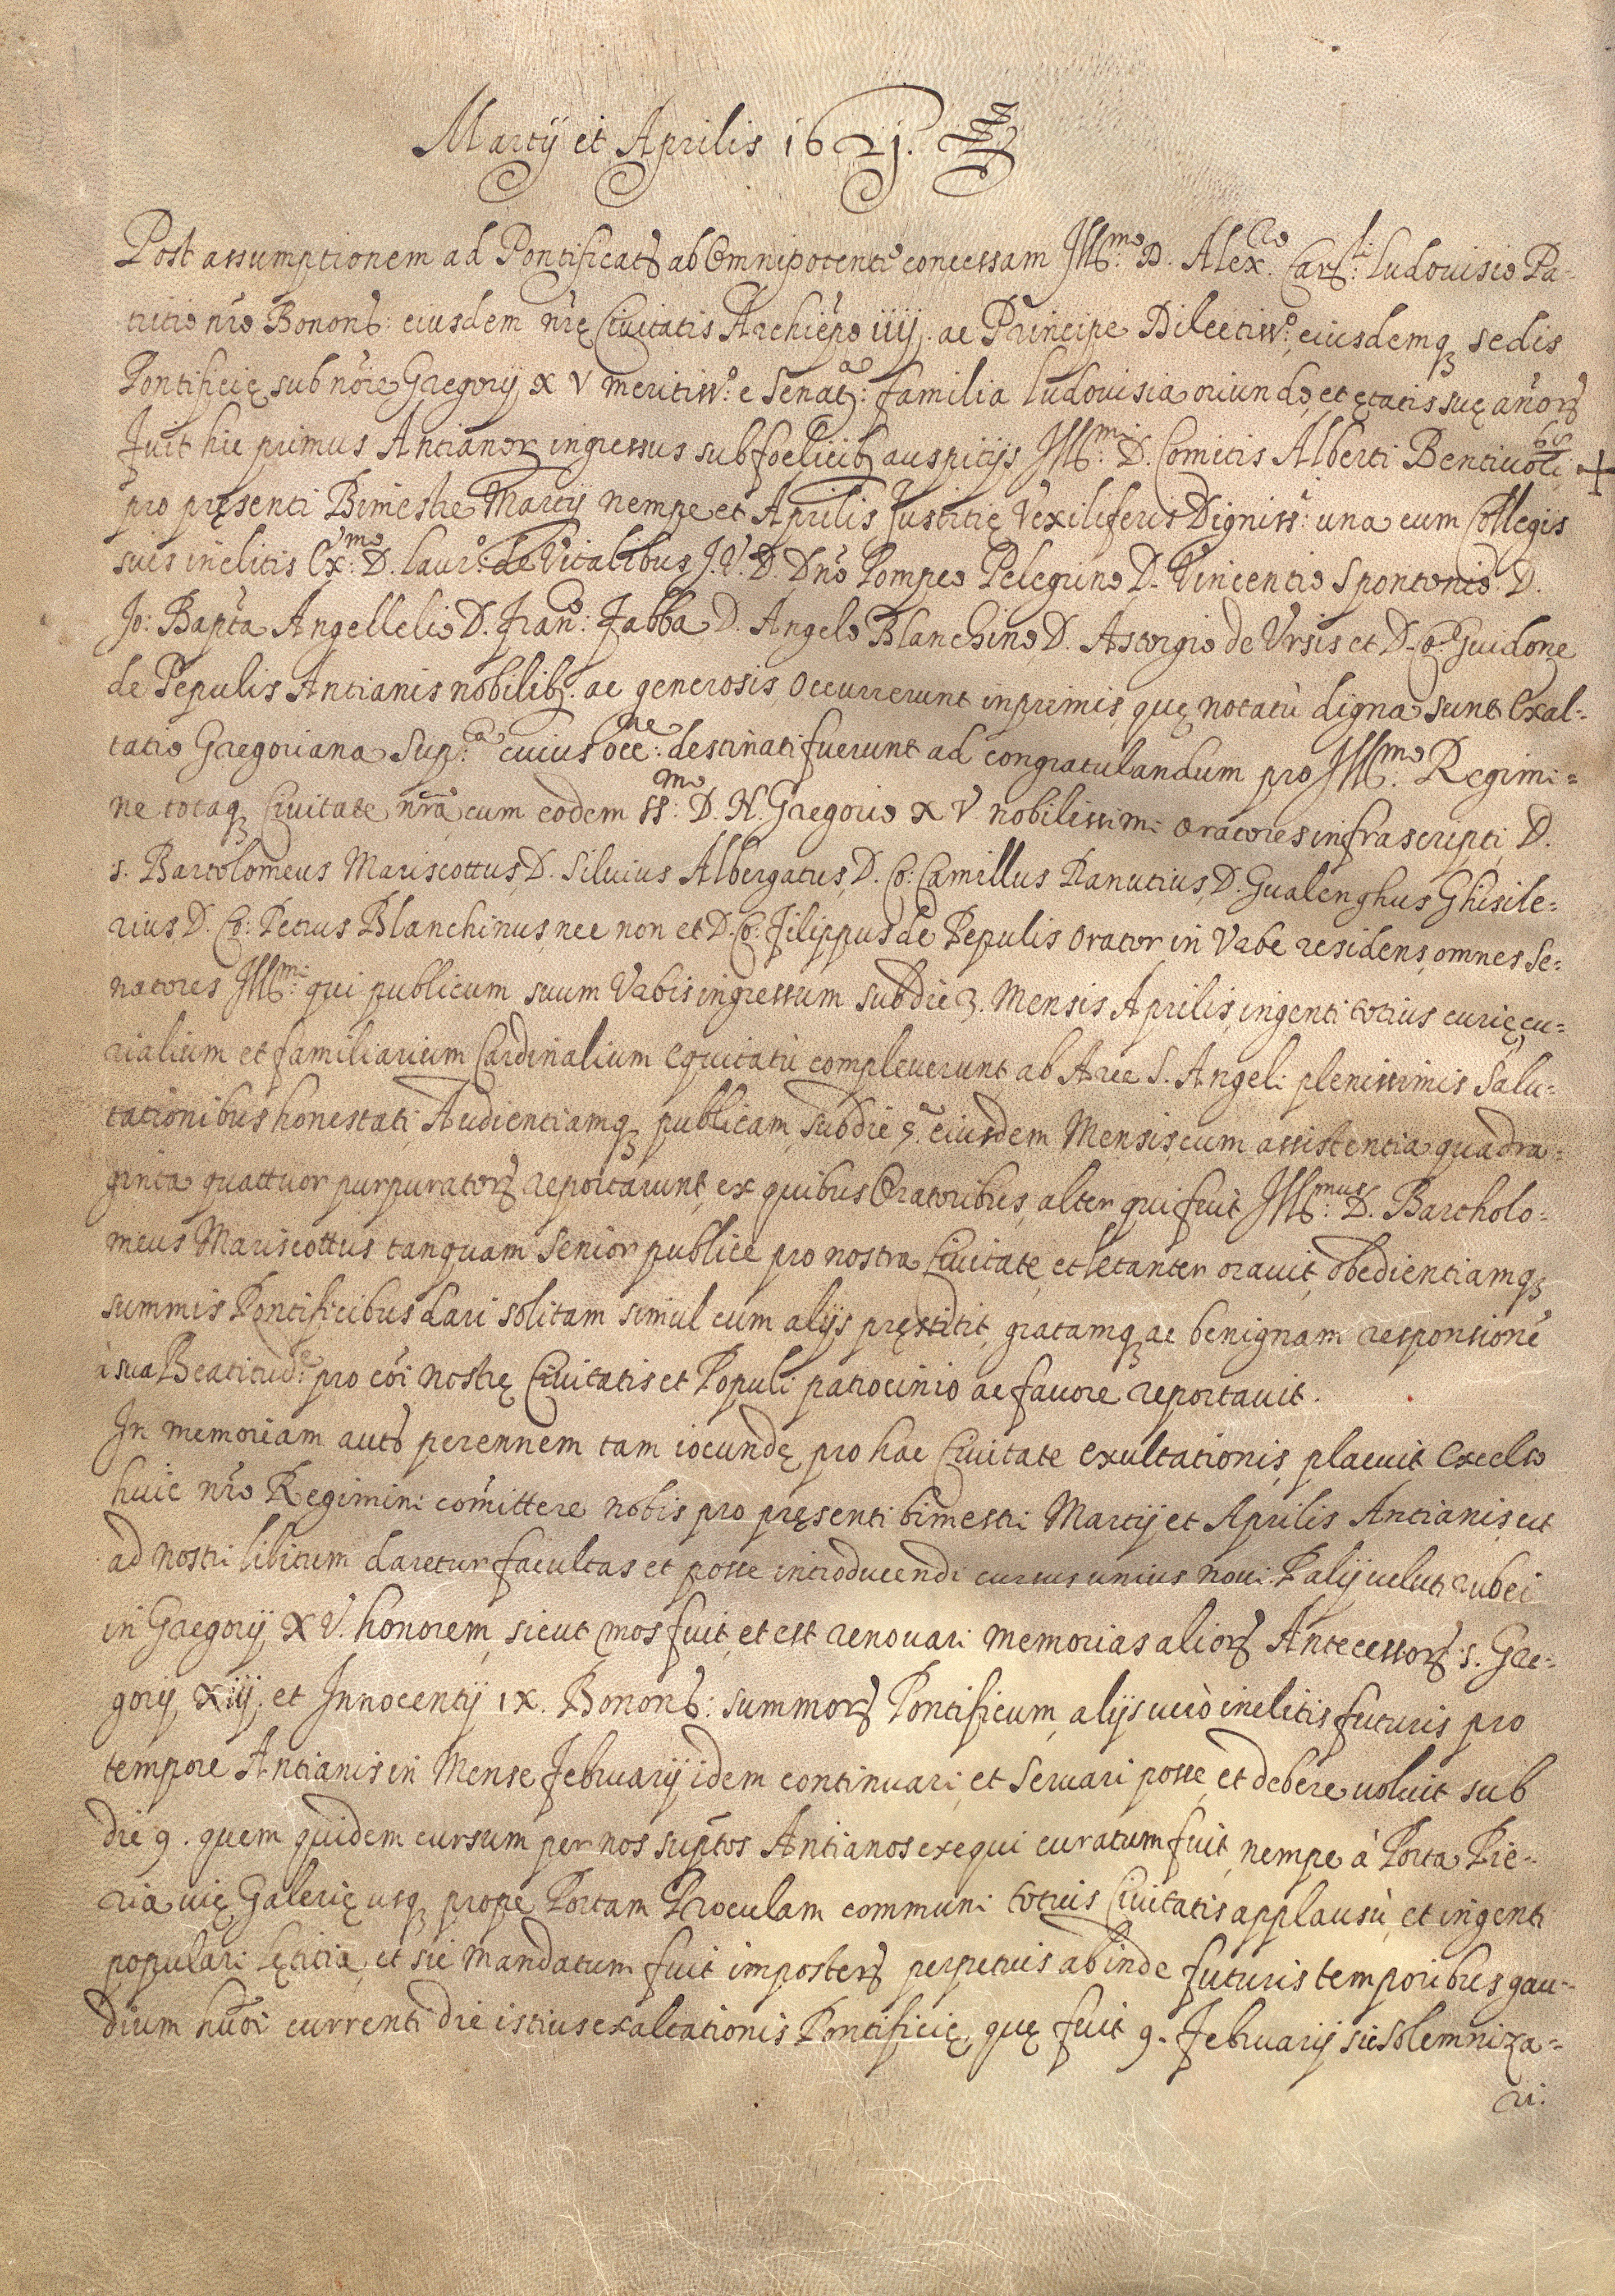 Martij et Aprilis 1621.
Post assumptionem ad Pontificatū ab Omnipotenti concessam Ill.mo D. Alex.ro Car.li Ludouisio Pa-
tritio nr̄o Bonon̄: eiusdem nrę Ciuitatis Archiep̄o iiij. ac Principe Dilectiss.o, eiusdemq; sedis
Pontificię sub nōie Gregorij XV meritiss.o e Senat.a familia Ludouisia oriundo, et ętatis suę an̄orū
Fuit hic primus Antianorū ingressus sub foelicib; auspitijs Ill.mi D. Comitis Alberti Bentiuoli +
pro pręsenti Bimestre Martij nempe et Aprilis Iustitię Vexiliferis Digniss.i una cum Collegis
suis inclitis Ex.mo D. Laur.o de Vitalibus J.V.D. Dn̄o Pompeo Pelegrino, D. Vincentio Spontonio. D.
Jo: Bapt̄a Angellelio D. Fran.o Fabba D. Angelo Blanchino, D. Astorgio de Ursis et D. Co. Guidone
de Pepulis Antianis nobilib; ac generosis, Occurrerunt inprimis, quę notatù digna sunt Exal-
tatio Gregoriana Sup.ca cuius occ.ne destinati fuerunt ad congratulandum pro Ill.mo Regimi-
ne totaq; Ciuitate nrā, cum eodem SS.mo D. N. Gregorio XV nobilissimi Oratores infrascripti, D.
s. Bartolomeus Mariscottus, D. Siluius Albergatus, D. Co: Camillus Ranutius, D. Gualenghus Ghisile-
rius, D. Co: Petrus Blanchinus, nec non et D. Co. Filippus de Pepulis Orator in Vrbe residens, omnes Se-
natores Ill.mi qui publicum suum Vrbis ingressum sub die 3. Mensis Aprilis, ingenti totius curię, cu-
rialium et familiarium Cardinalium equitatù compleuerunt, ab Arce S. Angeli plenissimis Salu-
tationibus honestati, Audientiamq; publicam, sub die 5.a eiusdem Mensis, cum assistentia quadra-
ginta quattuor purpuratorū reportarunt, ex quibus Oratoribus, alter qui fuit Ill.mus D. Bartholo-
meus Mariscottus tanquam Senior publice pro nostra Ciuitate, et letanter orauit, obedientiamq;
summis Pontificibus dari solitam simul cum alijs pręstitit, gratamq; ac benignam responsionē
à sua Beatitud.e pro cōi nostrę Ciuitatis et Populi patrocinio ac fauore reportauit.
In memoriam autē perennem tam iocundę pro hac Ciuitate exultationis, placuit Excelso
huic nr̄o Regimini comittere nobis pro pręsenti bimestri Martij et Aprilis Antianis, ut
ad nostri libitum daretur facultas et posse introducendi cursus unius noui Palij ueluti rubei
in Gregorij XV. honorem, sicut mos fuit, et est renouari memorias aliorū Antecessorū s. Gre-
gorij XIIJ. et Innocentij IX. Bonon̄: summorū Pontificum, alijs uerò inclitis futuris pro
tempore Antianis in Mense Februarij idem continuari, et Seruari posse, et debere uoluit sub
die 9. quem quidem cursum per nos sup̄tos Antianos exequi curatum fuit, nempe à Porta Pie-
ria uię Galerię usq; propè Portam Proculam communi totius Ciuitatis applausù, et ingenti
populari lętitia, et sic mandatum fuit imposterū perpetuis abinde futuris temporibus gau-
dium hmōi currenti die istius exaltationis Pontificię, quę fuit 9. Februarij sic solemniza-
ri.